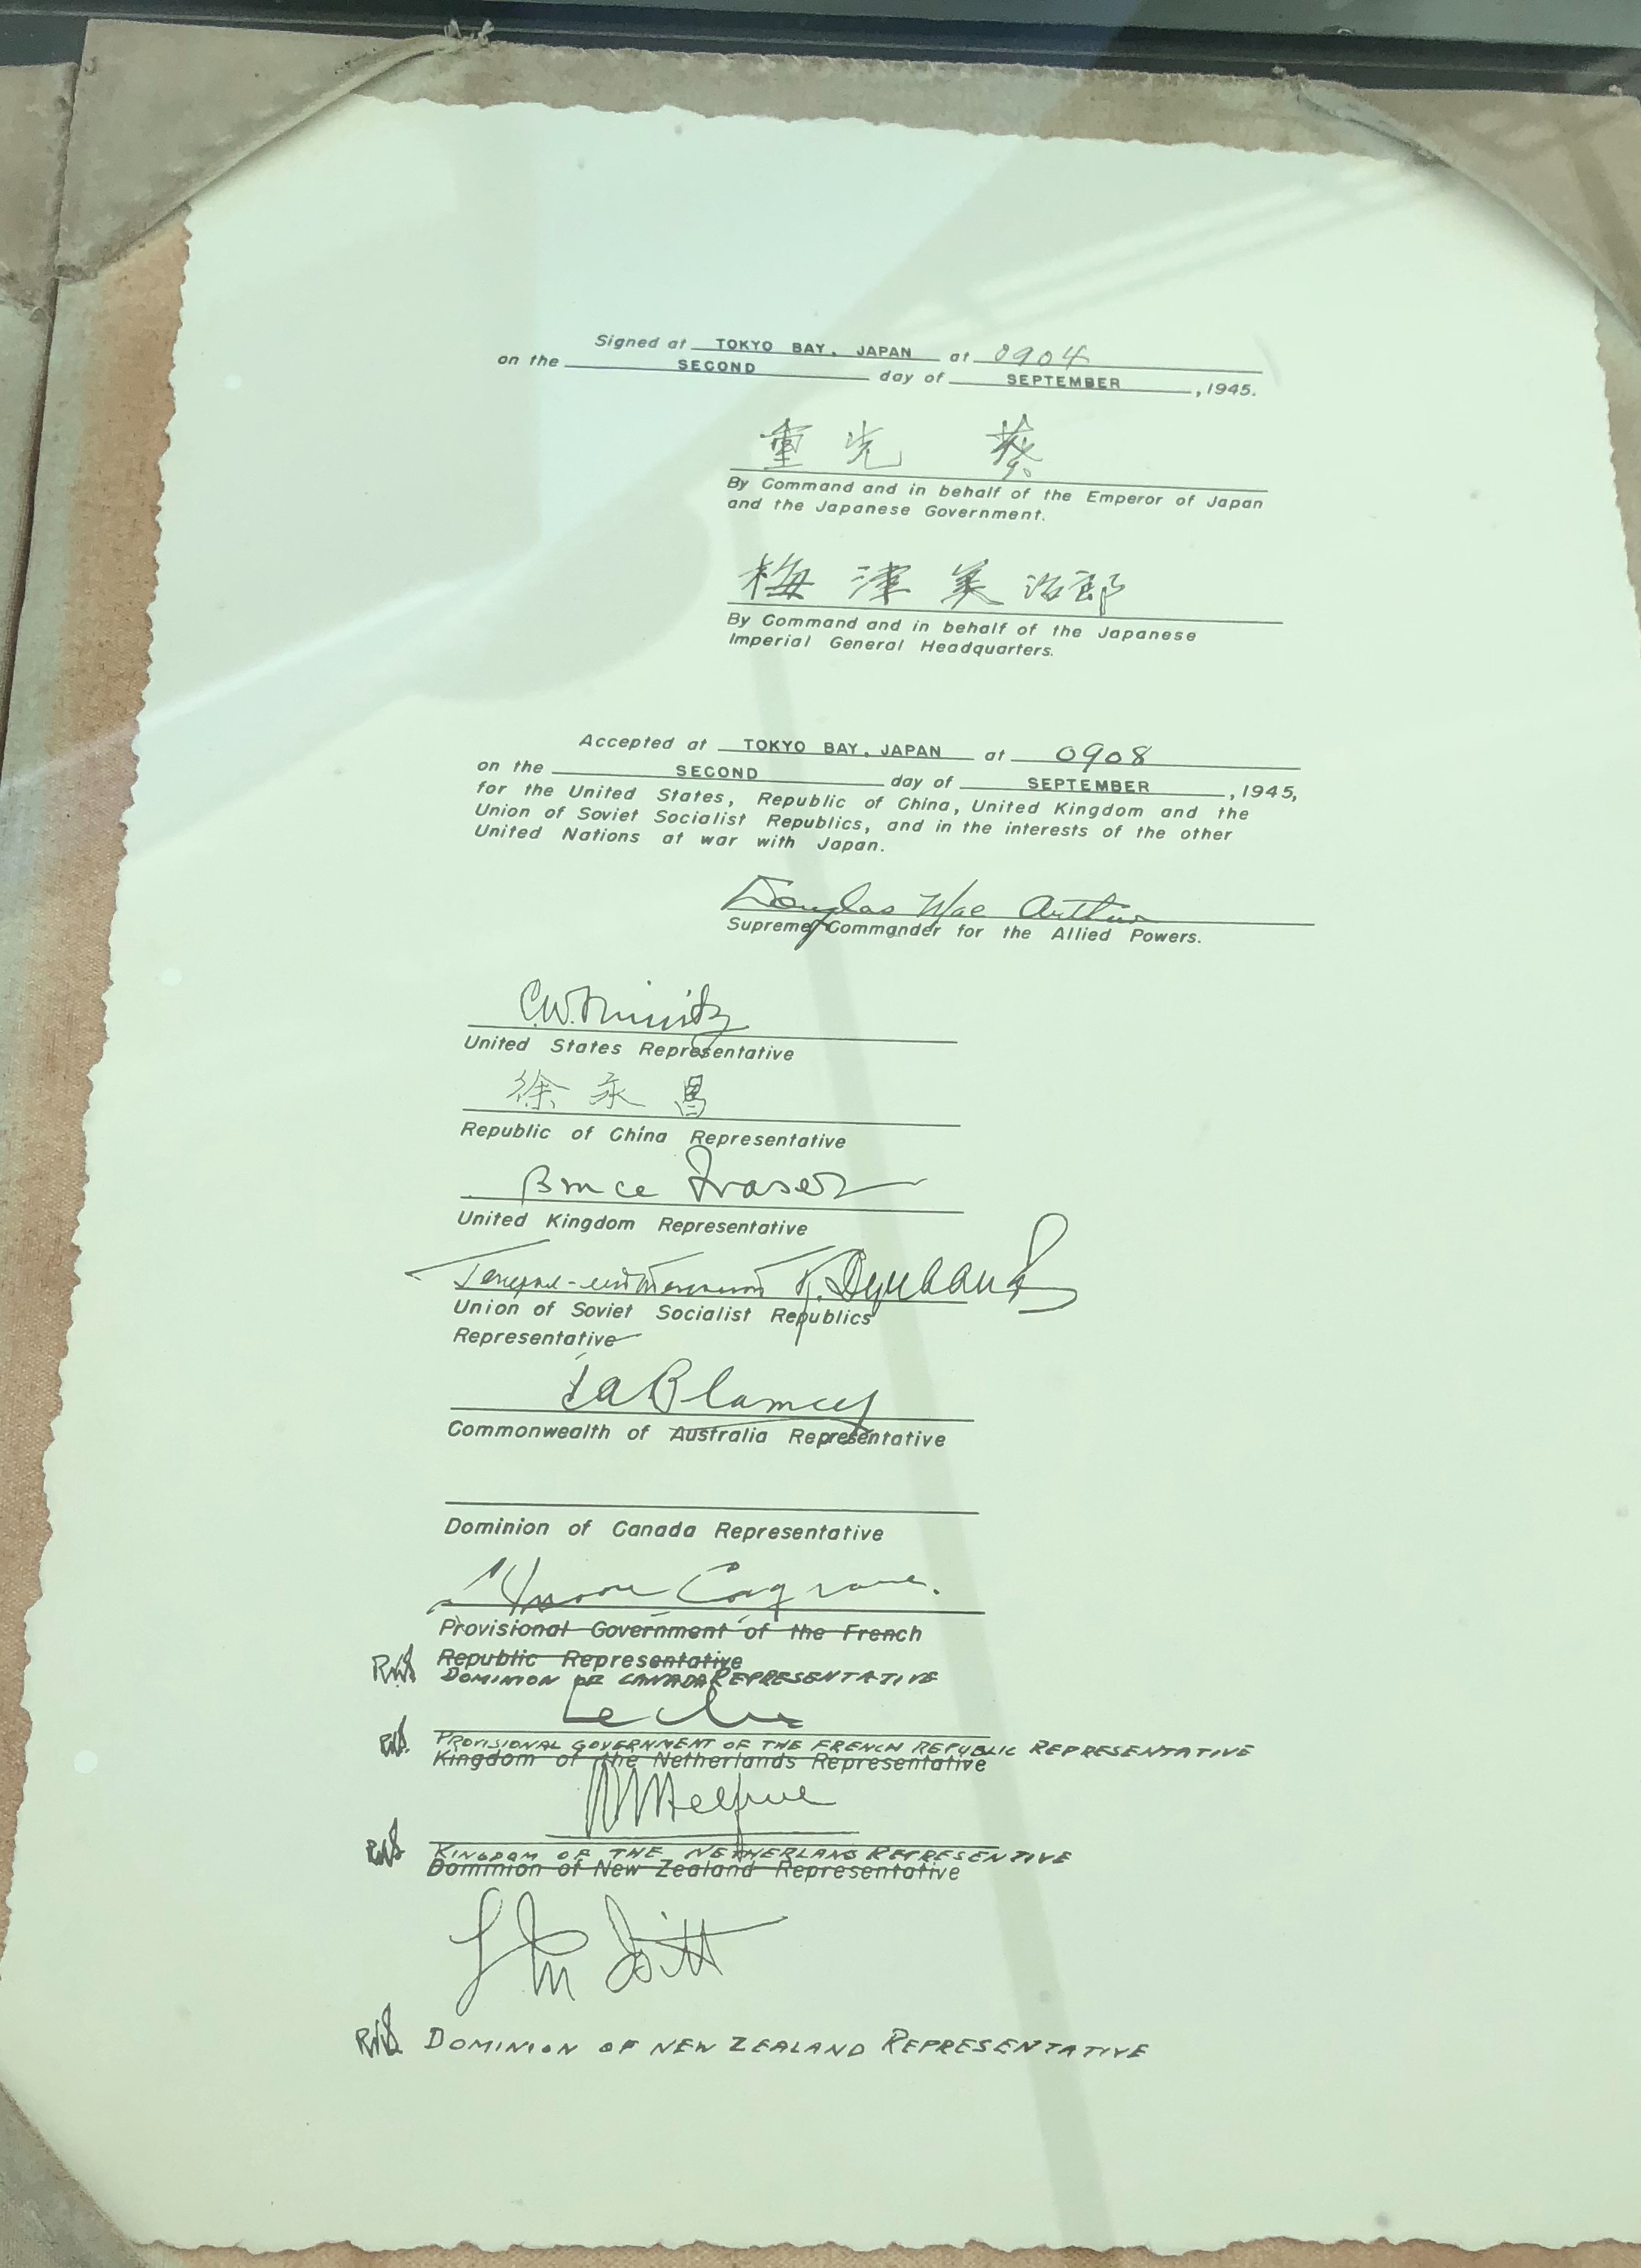 Signed at TOKYO BAY, JAPAN at 0904
on the SECOND day of SEPTEMBER, 1945.
重光 葵
By Command and in behalf of the Emperor of Japan
and the Japanese Government.
梅津美治郎
By Command and in behalf of the Japanese
Imperial General Headquarters.
Accepted at TOKYO BAY, JAPAN at 0908
on the SECOND day of SEPTEMBER, 1945,
for the United States, Republic of China, United Kingdom and the
Union of Soviet Socialist Republics, and in the interests of the other
United Nations at war with Japan.
Douglas MacArthur
Supreme Commander for the Allied Powers.
C.W. Nimitz
United States Representative
徐永昌
Republic of China Representative
Bruce Fraser
United Kingdom Representative
Генерал-лейтенант К. Деревянко
Union of Soviet Socialist Republics
Representative
T a Blamey
Commonwealth of Australia Representative
Dominion of Canada Representative
Moore Cosgrave.
Provisional Government of the French
Republic Representative
RKS DOMINION OF CANADA REPRESENTATIVE
Leclerc
RKS PROVISIONAL GOVERNMENT OF THE FRENCH REPUBLIC REPRESENTATIVE
Kingdom of the Netherlands Representative
Helfrich
RKS KINGDOM OF THE NETHERLAND REPRESENTIVE
Dominion of New Zealand Representative
L M Isitt
RKS DOMINION OF NEW ZEALAND REPRESENTATIVE